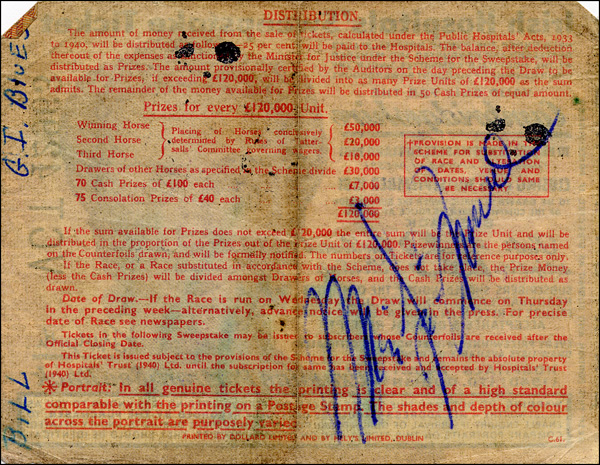 DISTRIBUTION.
The amount of money received from the sale of tickets, calculated under the Public Hospitals' Acts, 1933
to 1940, will be distributed as follows:—25 per cent. will be paid to the Hospitals. The balance, after deduction
thereout of the expenses as sanctioned by the Minister for Justice under the Scheme for the Sweepstake, will be
distributed as Prizes. The amount provisionally certified by the Auditors on the day preceding the Draw to be
available for Prizes, if exceeding £120,000, will be divided into as many Prize Units of £120,000 as the sum
admits. The remainder of the money available for Prizes will be distributed in 50 Cash Prizes of equal amount.
Prizes for every £120,000 Unit.
Winning Horse £50,000
Second Horse £20,000
Third Horse £10,000
Placing of Horses conclusively
determined by Rules of Tatter-
salls' Committee governing wagers.
Drawers of other Horses as specified in the Scheme divide £30,000
70 Cash Prizes of £100 each £7,000
75 Consolation Prizes of £40 each £3,000
£120,000
PROVISION IS MADE IN THE
SCHEME FOR SUBSTITUTION
OF RACE AND ALTERATION
OF DATES, VENUE AND
CONDITIONS SHOULD SAME
BE NECESSARY
If the sum available for Prizes does not exceed £120,000 the entire sum will be one Prize Unit and will be
distributed in the proportion of the Prizes out of the Prize Unit of £120,000. Prizewinners are the persons named
on the Counterfoils drawn, and will be formally notified. The numbers on Tickets are for reference purpose only.
If the Race, or a Race substituted in accordance with the Scheme, does not take place, the Prize Money
(less the Cash Prizes) will be divided amongst Drawers of Horses, and the Cash Prizes will be distributed as
drawn.
Date of Draw.—If the Race is run on Wednesday the Draw will commence on Thursday
in the preceding week—alternatively, advance notice will be given in the press. For precise
date of Race see newspapers.
Tickets in the following Sweepstake may be issued to subscribers whose Counterfoils are received after the
Official Closing Date.
This Ticket is issued subject to the provisions of the Scheme for the Sweepstake and remains the absolute property
of Hospitals' Trust (1940) Ltd. until the subscription for same has been received and accepted by Hospitals' Trust
(1940) Ltd.
* Portrait: In all genuine tickets the printing is clear and of a high standard
comparable with the printing on a Postage Stamp. The shades and depth of colour
across the portrait are purposely varied
PRINTED BY DOLLARD LIMITED AND BY HELY'S LIMITED, DUBLIN
C.61.
BILL
G.I. BLUES